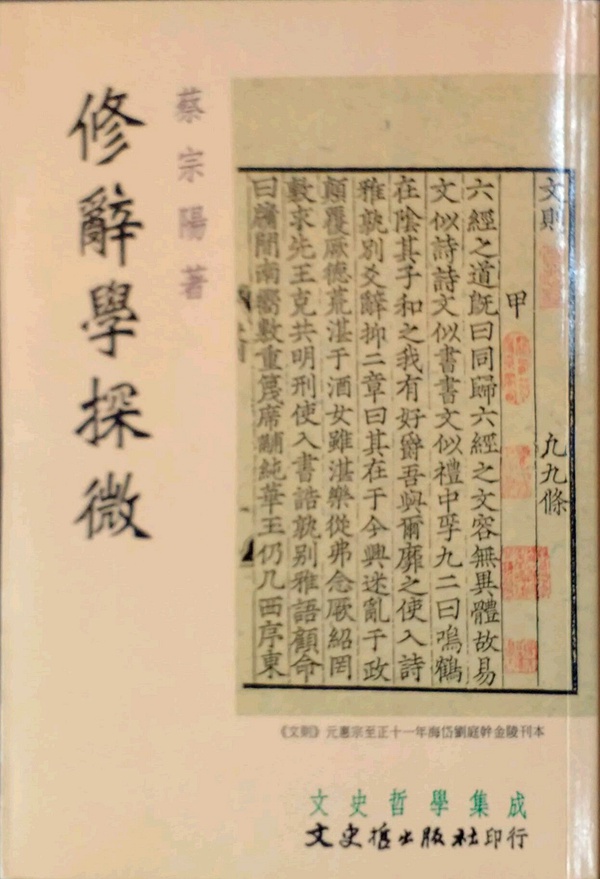 修辭學探微
蔡宗陽著
文則
凢九條
甲
六經之道既曰同歸六經之文容無異體故易
文似詩詩文似書書文似禮中孚九二曰鳴鶴
在陰其子和之我有好爵吾與爾靡之使入詩
雅孰別爻辭抑二章曰其在于今興迷亂于政
顛覆厥德荒湛于酒女雖湛樂從弗念厥紹罔
敷求先王克共明刑使入書誥孰別雅語顧命
曰牖閒南嚮敷重篾席黼純華王仍几西序東
《文則》元惠宗至正十一年海岱劉庭幹金陵刊本
文史哲學集成
文史哲出版社印行